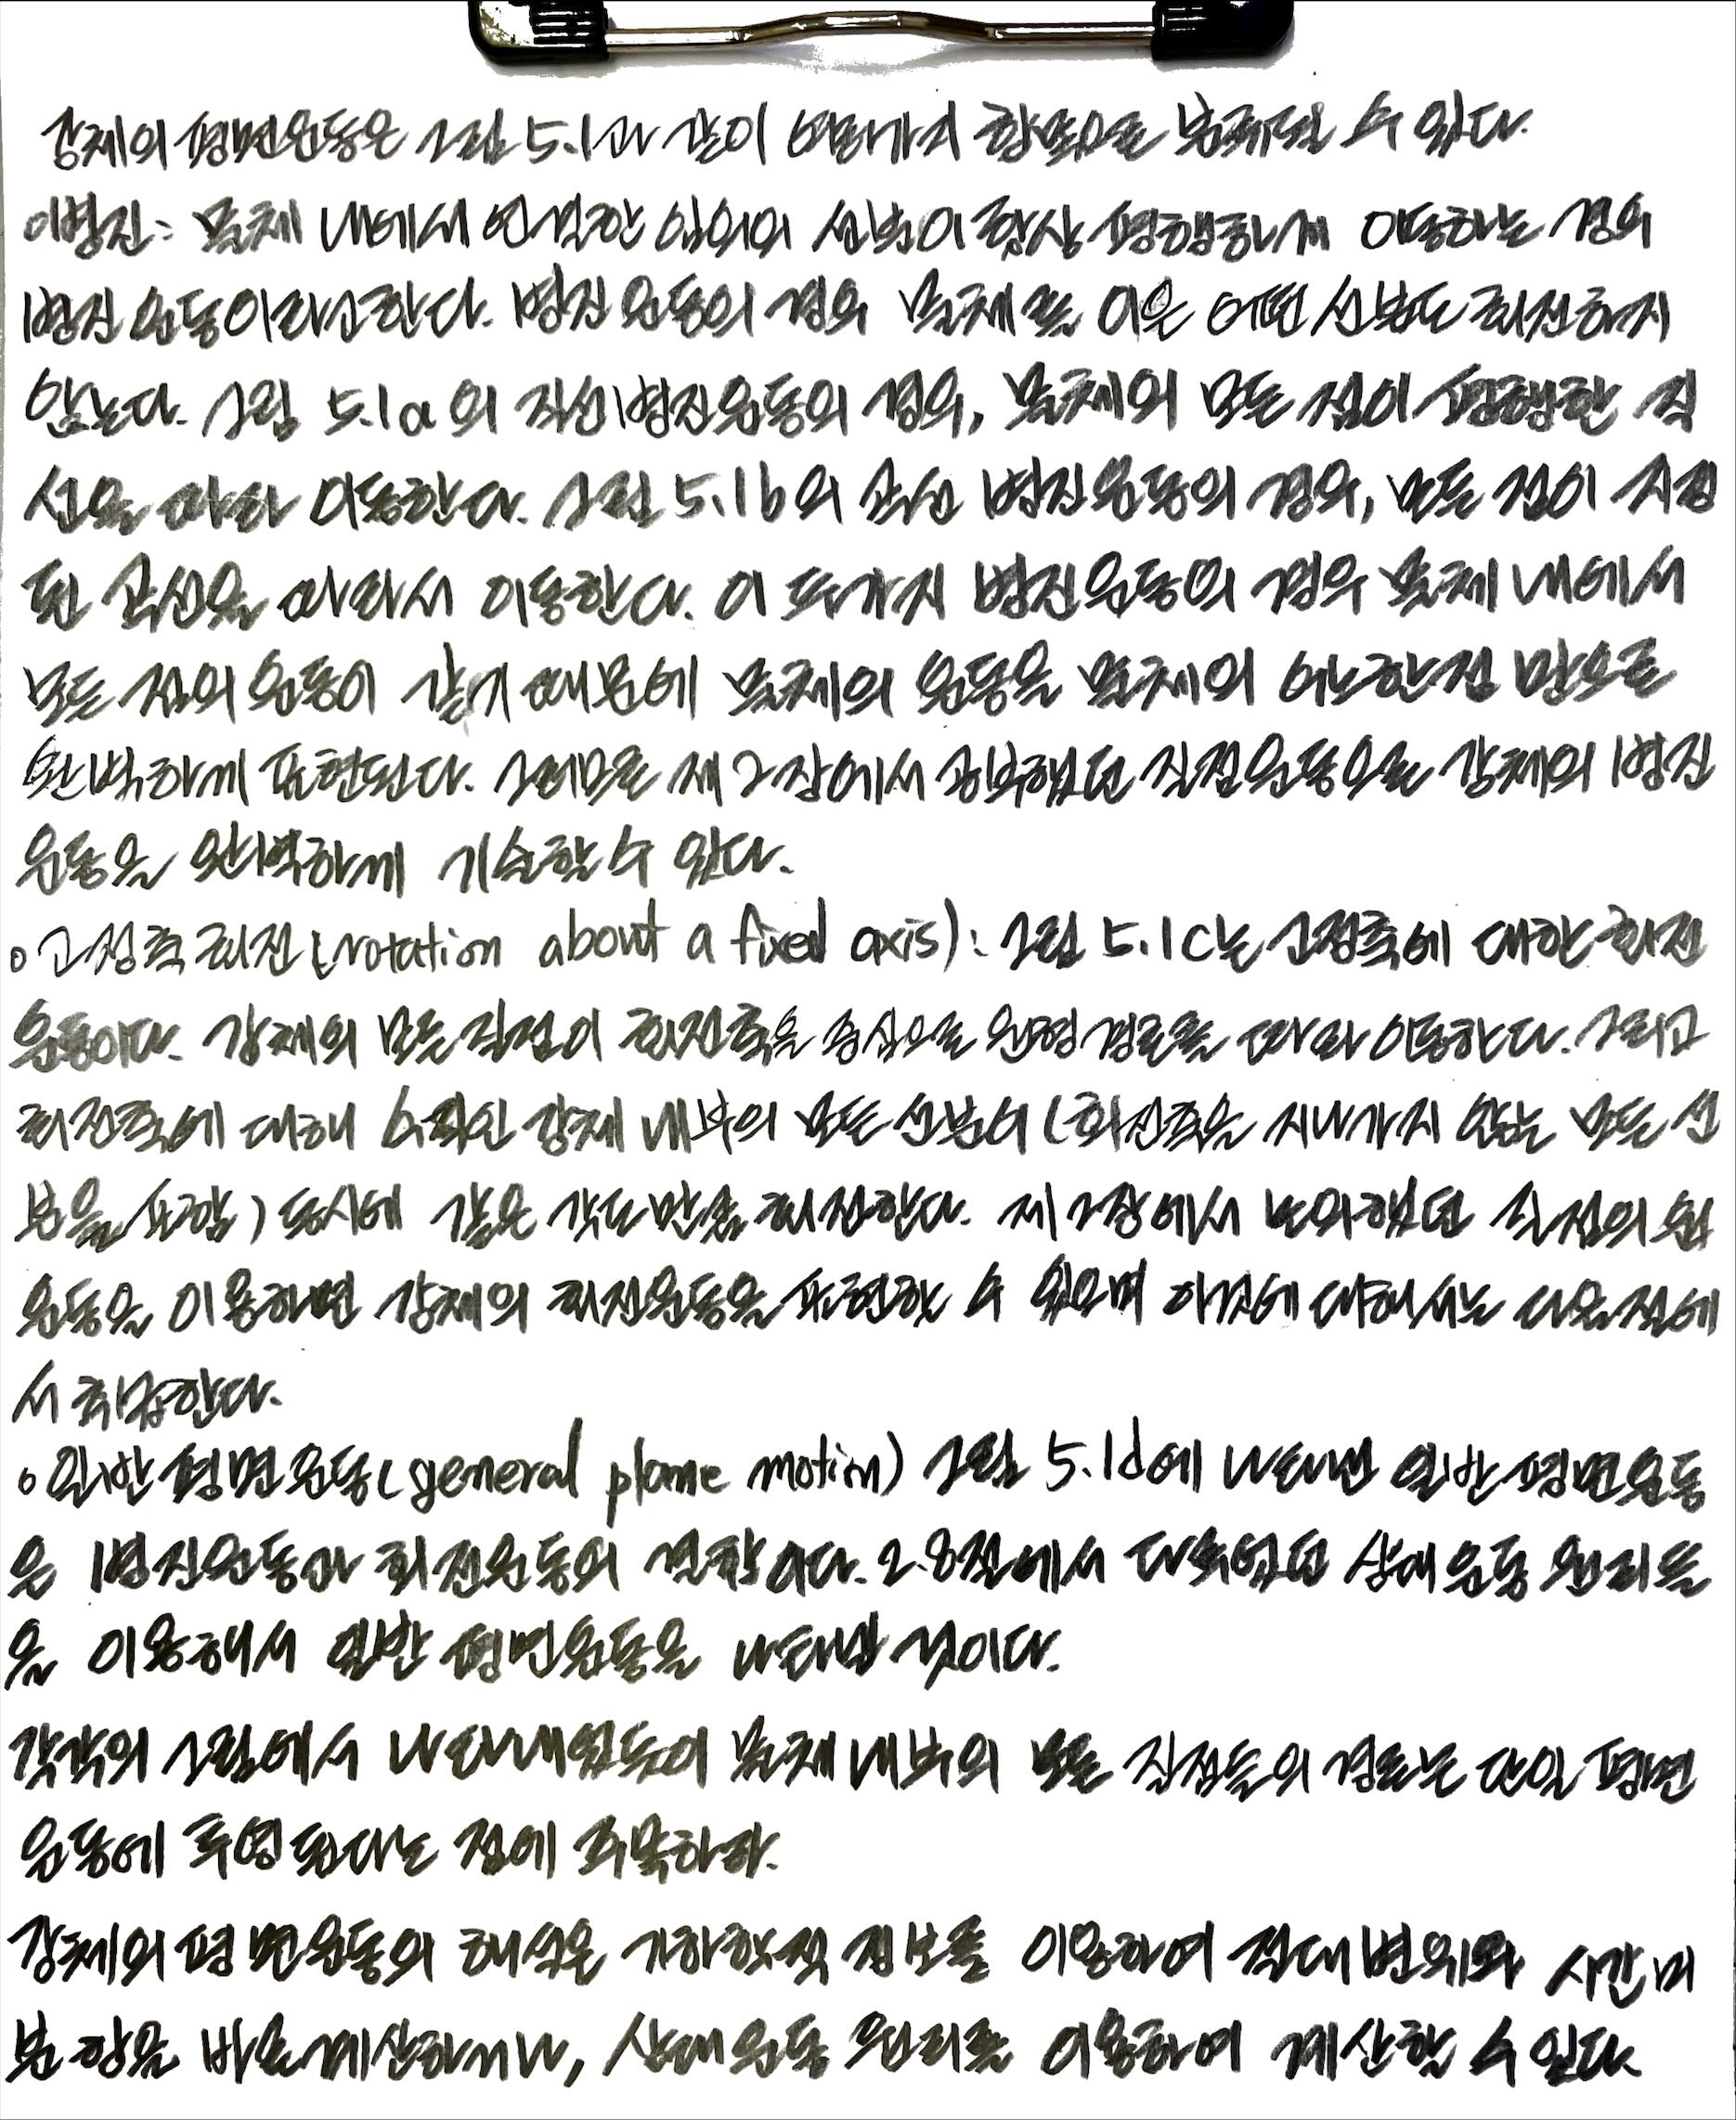 강체의 평면운동은 그림 5.1과 같이 여러가지 항목으로 분류될 수 있다.
이병진: 물체 내에서 연결한 임의의 선분이 항상 평행하게 이동하는 경우
병진 운동이라고한다. 병진 운동의 경우 물체를 이은 어떤 선분도 회전하지
않는다. 그림 5.1a의 직선병진운동의 경우, 물체의 모든 점이 평행한 직
선을 따라 이동한다. 그림 5.1b의 곡선 병진운동의 경우, 모든 점이 지정
된 곡선을 따라서 이동한다. 이 두가지 병진운동의 경우 물체 내에서
모든 점의 운동이 같기 때문에 물체의 운동을 물체의 어느한점 만으로
완벽하게 표현된다. 그러므로 제 2장에서 공부했던 질점운동으로 강체의 병진
운동을 완벽하게 기술할 수 있다.
o 고정축 회전 (rotation about a fixed axis): 그림 5.1c는 고정축에 대한 회전
운동이다. 강체의 모든 질점이 회전축을 중심으로 원형 경로를 따라 이동한다. 그리고
회전축에 대해 수직인 강체 내부의 모든 선분이 (회전축을 지나가지 않는 모든 선
분을 포함) 동시에 같은 각도 만큼 회전한다. 제 2장에서 논의했던 질점의 원
운동을 이용하면 강체의 회전운동을 표현할 수 있으며 이것에 대해서는 다음 절에
서 취급한다.
o 일반 평면 운동(general plane motion) 그림 5.1d에 나타낸 일반 평면운동
은 병진운동과 회전운동의 결합이다. 2.8절에서 다루었던 상대운동 원리들
을 이용해서 일반 평면운동을 나타낸 것이다.
각각의 그림에서 나타내었듯이 물체 내부의 모든 질점들의 경로는 단일 평면
운동에 투영된다는 점에 주목하라.
강체의 평면운동의 해석은 기하학적 정보를 이용하여 절대 변위와 시간 미
분 항을 바로 계산하거나, 상대운동 원리를 이용하여 계산할 수 있다.